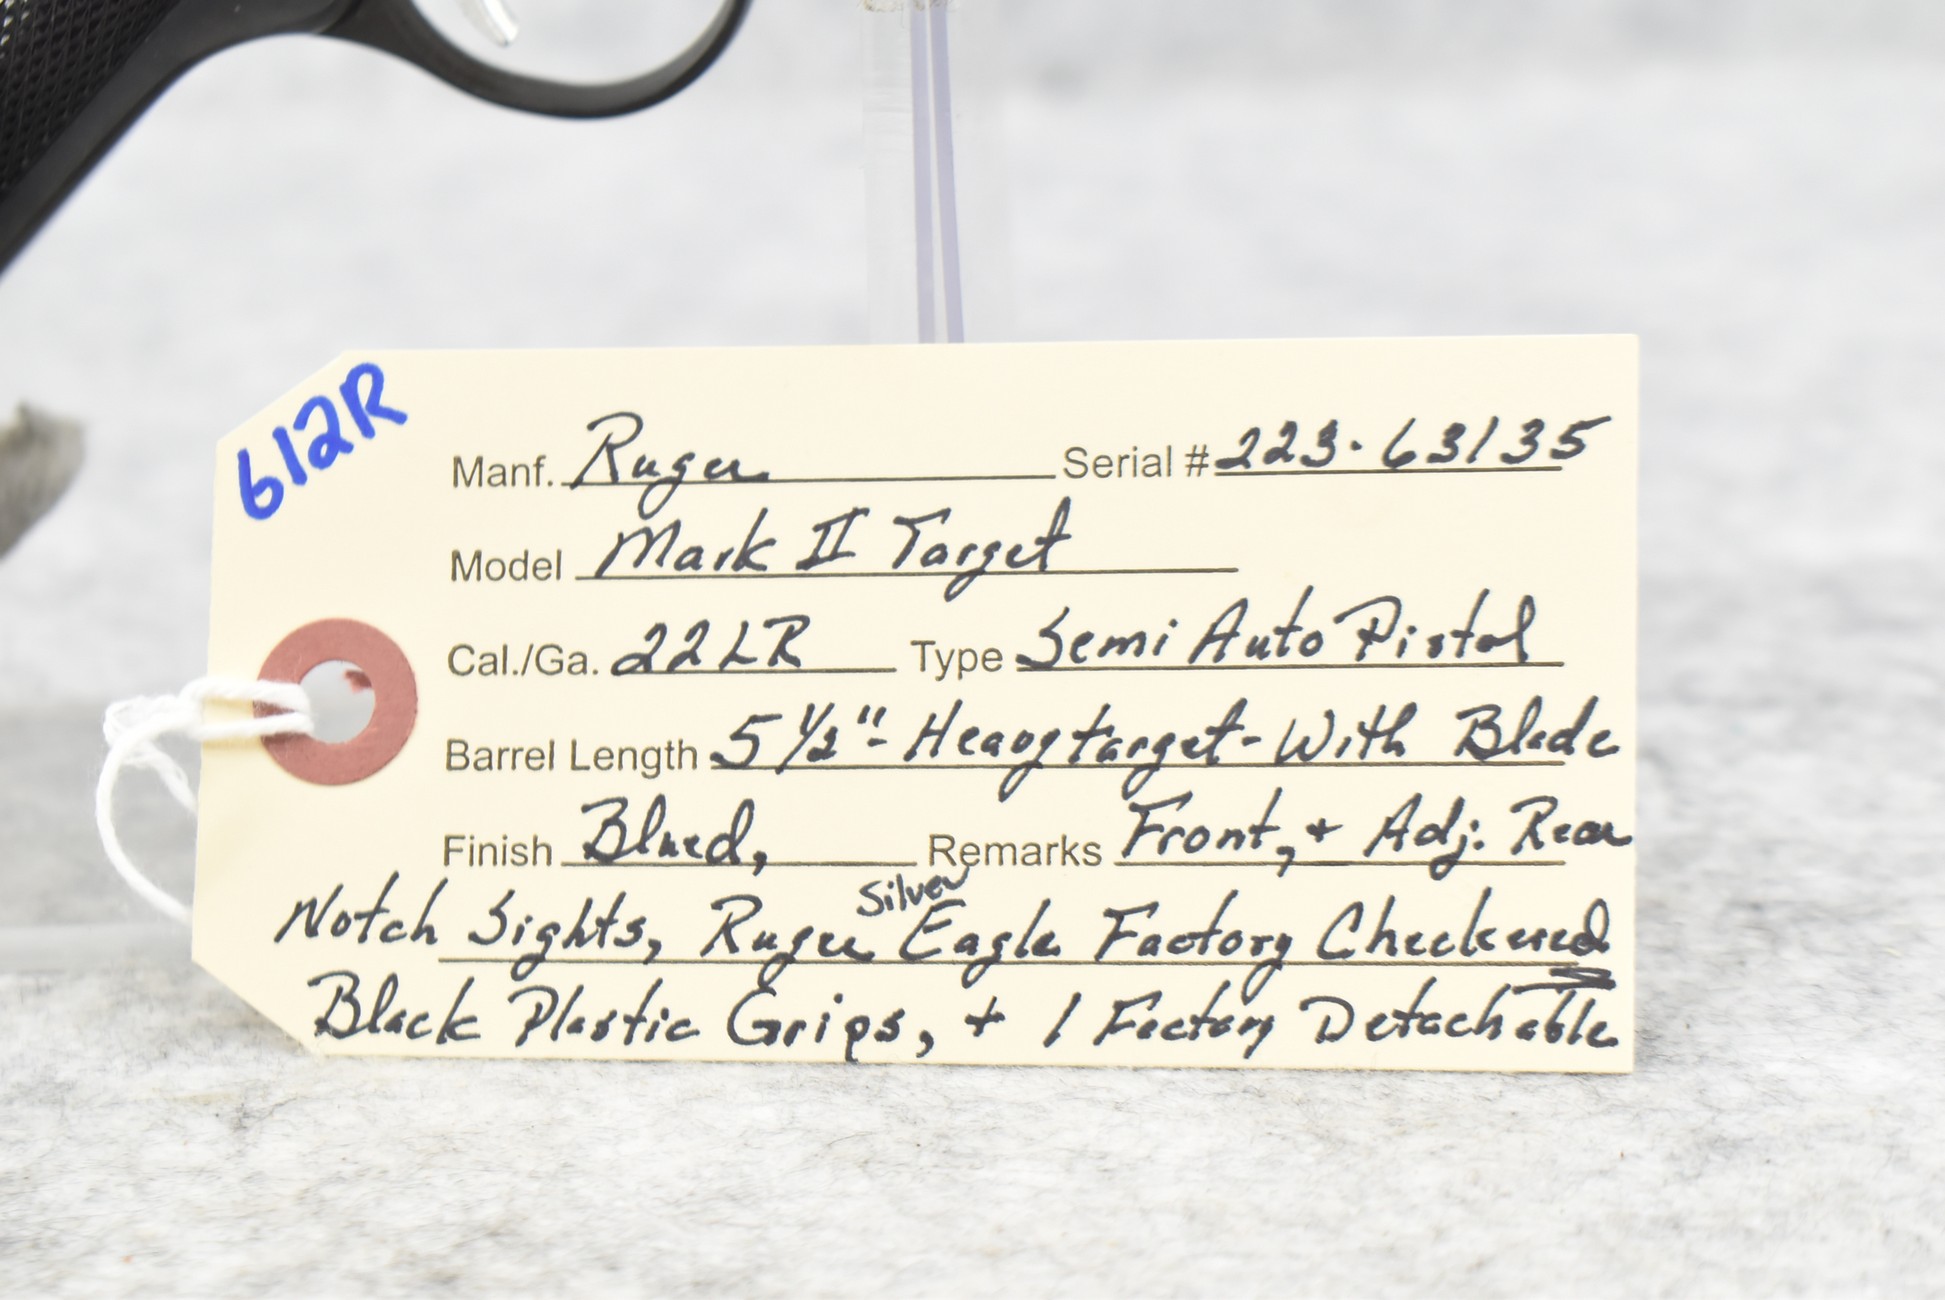 612R
Manf. Ruger Serial # 223-63135
Model Mark II Target
Cal./Ga. 22LR Type Semi Auto Pistol
Barrel Length 5 1/2"- Heavy target- With Blade
Finish Blued, Remarks Front, + Adj. Rear
Silver
Notch Sights, Ruger Eagle Factory Checkered
Black Plastic Grips, + 1 Factory Detachable